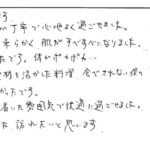 です
が丁寧で心地よく過ごせました。
柔らかく、肌がすべすべになりました。
たです。体がポカポカ…
材を活かした料理
たです。
着いた雰囲気で快適に過ごせました。
た訪れたいと思います